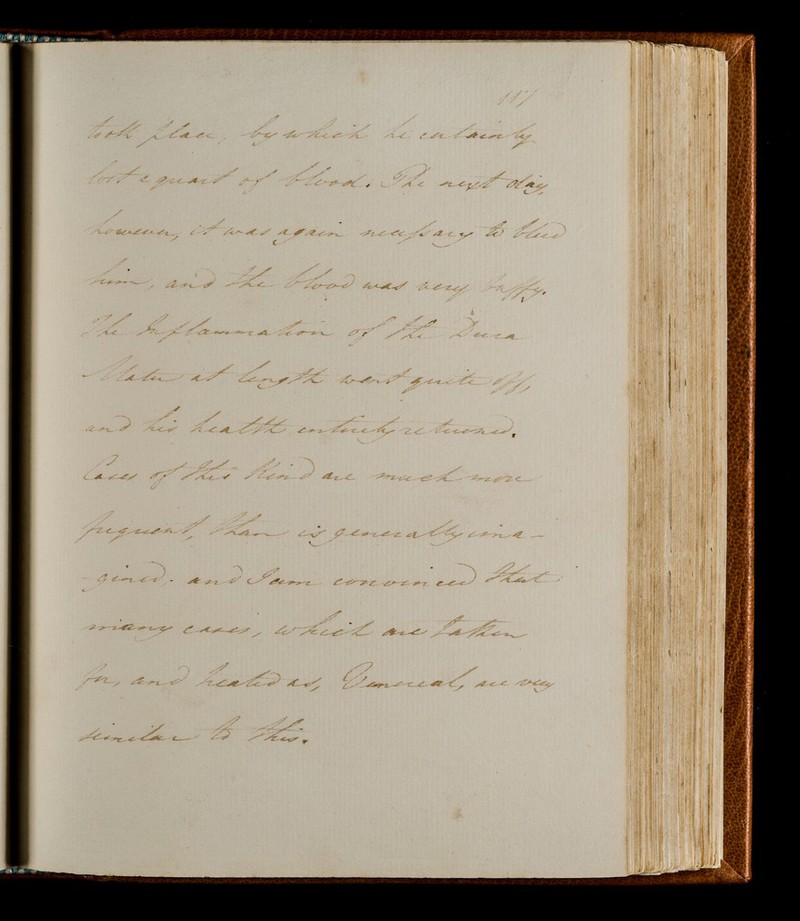 117
took place, by which he certainly
lost a quart of blood. The next day,
however, it was again necessary to bleed
him, and the blood was very buffy.
The Inflammation of the Dura
Mater at length went quite off,
and his health entirely returned.
Cases of this Kind are much more
frequent, than is generally ima-
-gined. and I am convinced that
many cases, which are taken
for, and treated as, Venereal, are very
similar to this.